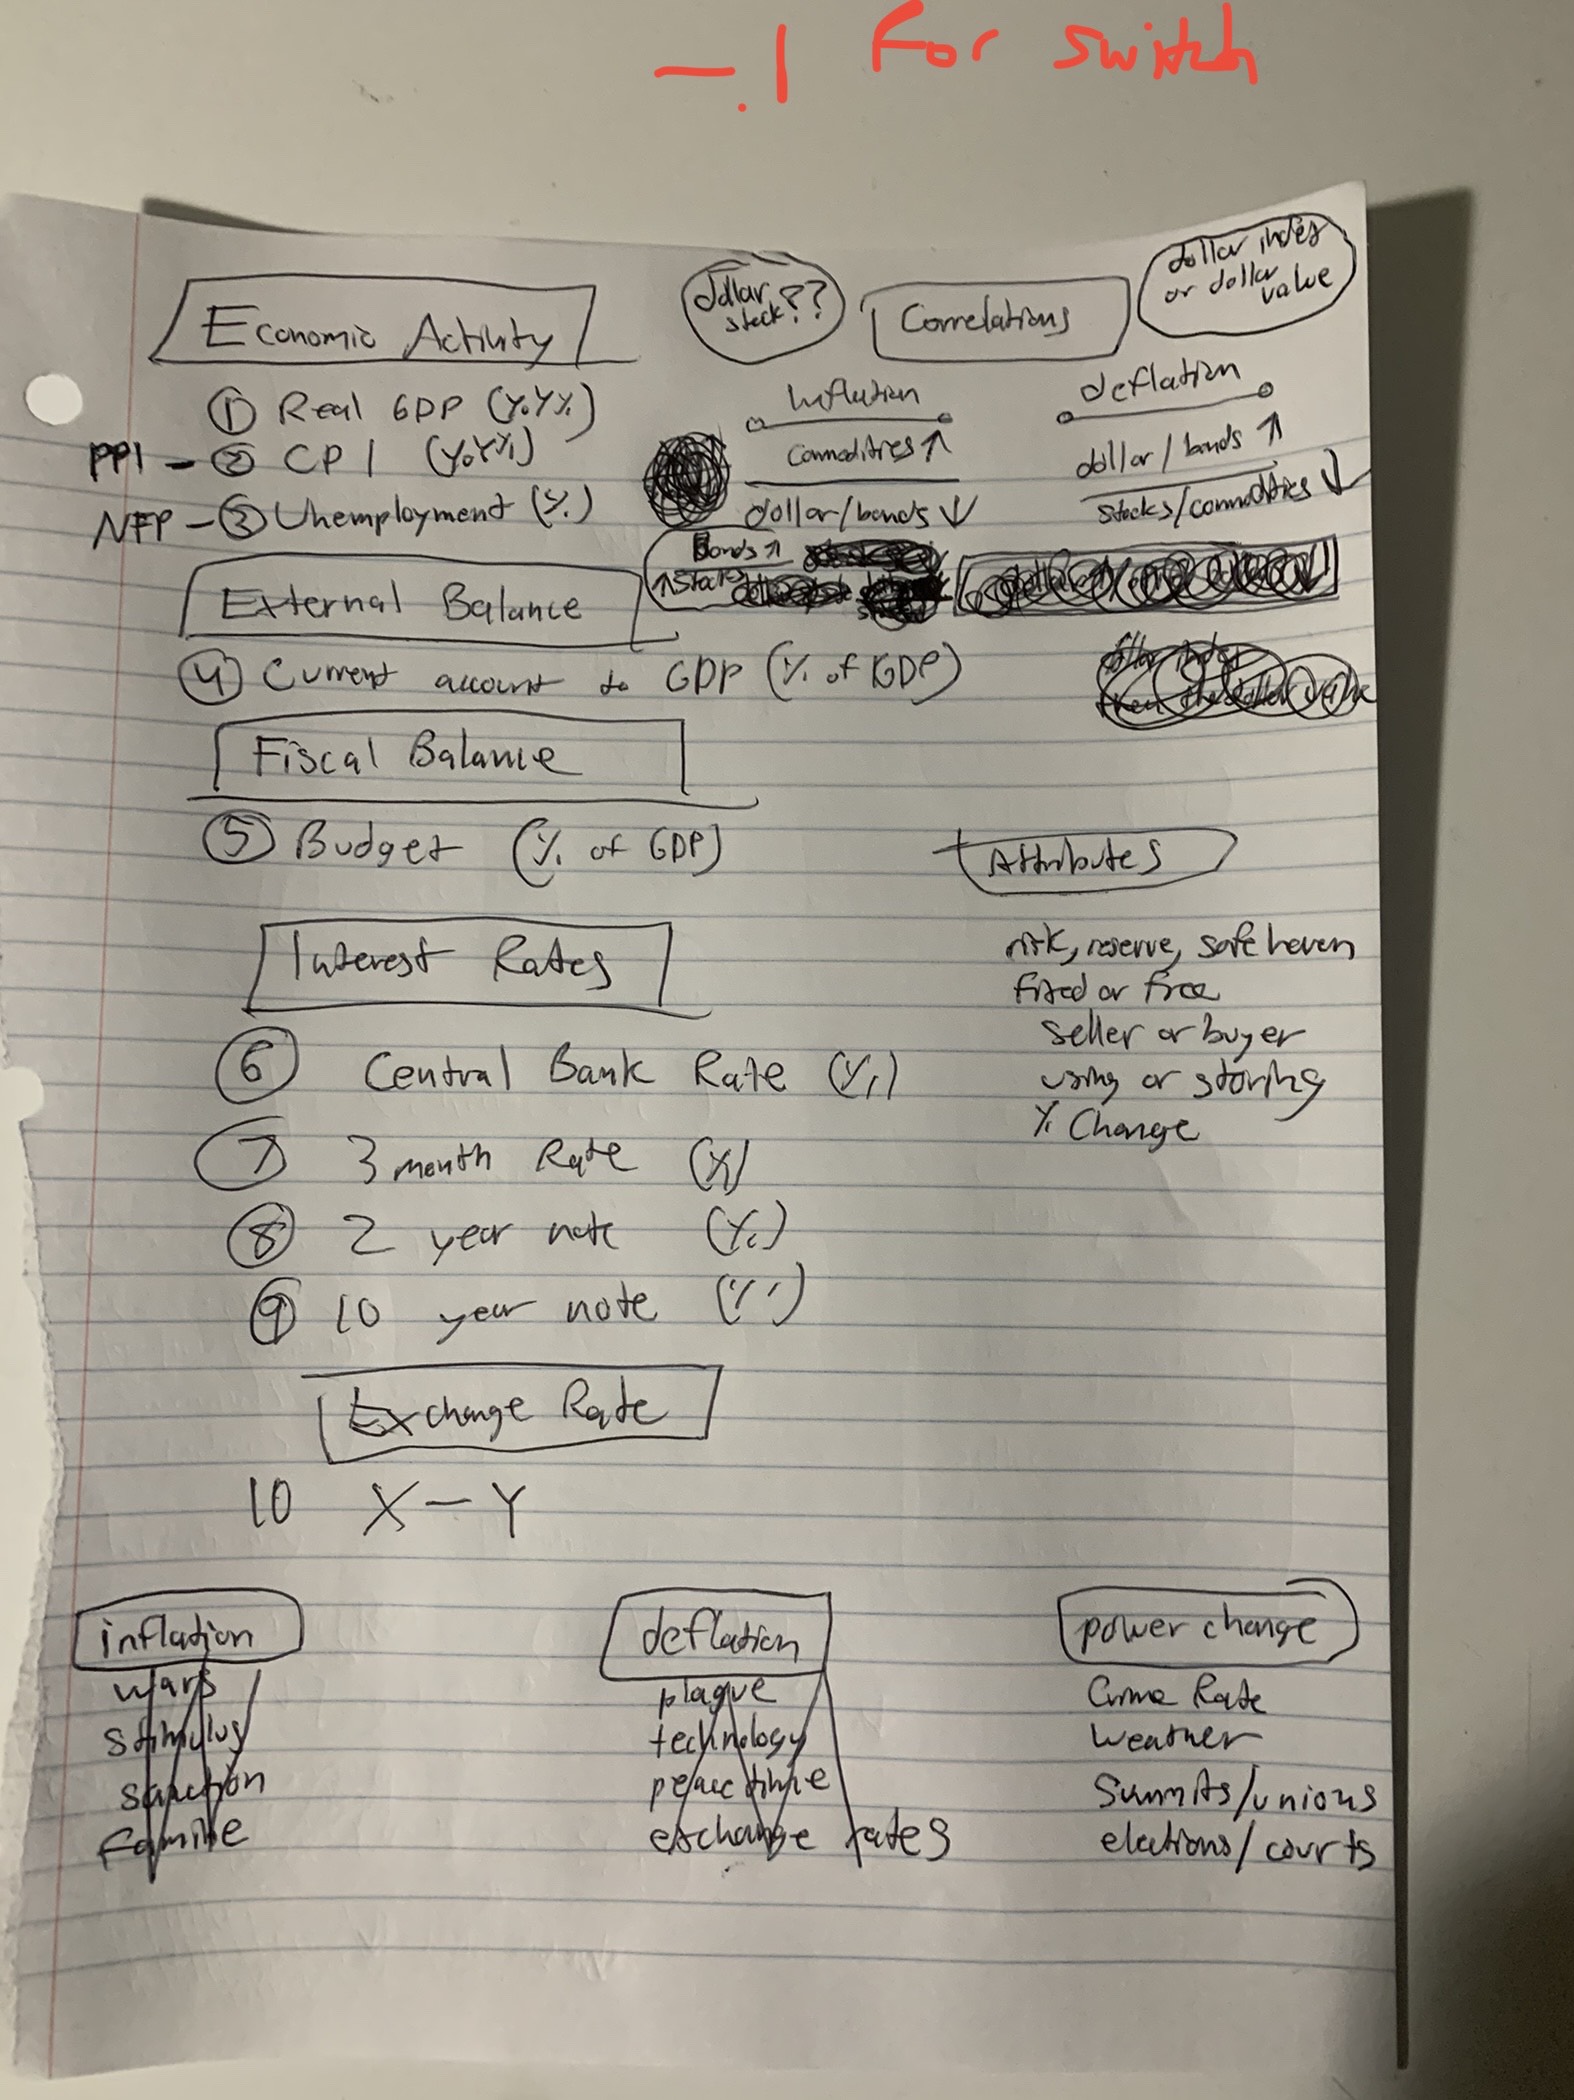 -.1 for switch
Economic Activity
① Real GDP (YoY%)
PPI - ② CPI (YoY%)
NFP - ③ Unemployment (%)
External Balance
④ Current account to GDP (% of GDP)
Fiscal Balance
⑤ Budget (% of GDP)
Interest Rates
⑥ Central Bank Rate (%)
⑦ 3 month Rate (%)
⑧ 2 year note (%)
⑨ 10 year note (%)
Exchange Rate
10 X-Y
dollar
stock??
Correlations
dollar index
or dollar
value
Inflation
Commodities ↑
dollar/bonds ↓
Bonds ↑
↑ Stocks
deflation
dollar/bonds ↑
stocks/commodities ↓
Attributes
risk, reserve, safe heven
fixed or free
seller or buyer
using or storing
% Change
inflation
wars
stimulus
sanction
famine
deflation
plague
technology
peace time
exchange rates
power change
Crime Rate
weather
Summits/unions
elections/courts